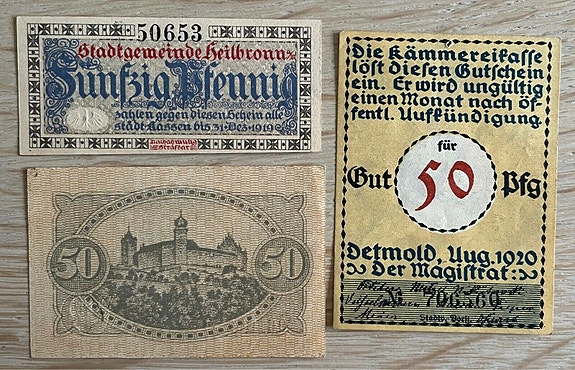 50653
Stadtgemeinde Heilbronn a/N
Fünfzig Pfennig
zahlen gegen diesen Schein alle
städt. Kassen bis 31. Dez. 1919
Nachahmung
strafbar
50
50
Die Kämmereikasse
löst diesen Gutschein
ein. Er wird ungültig
einen Monat nach öf-
fentl. Aufkündigung.
für
Gut 50 Pfg
Detmold, Aug. 1920
Der Magistrat:
Stadtv. Vorst.